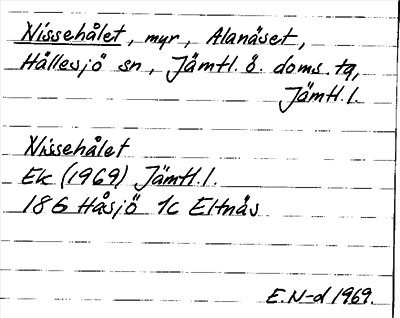 Nissehålet, myr, Alanäset,
Hällesjö sn, Jämtl. ö. doms. tg,
Jämtl. l.
Nissehålet
Ek (1969) Jämtl. l.
18G Håsjö 1c Eltnäs
E. N-d 1969.